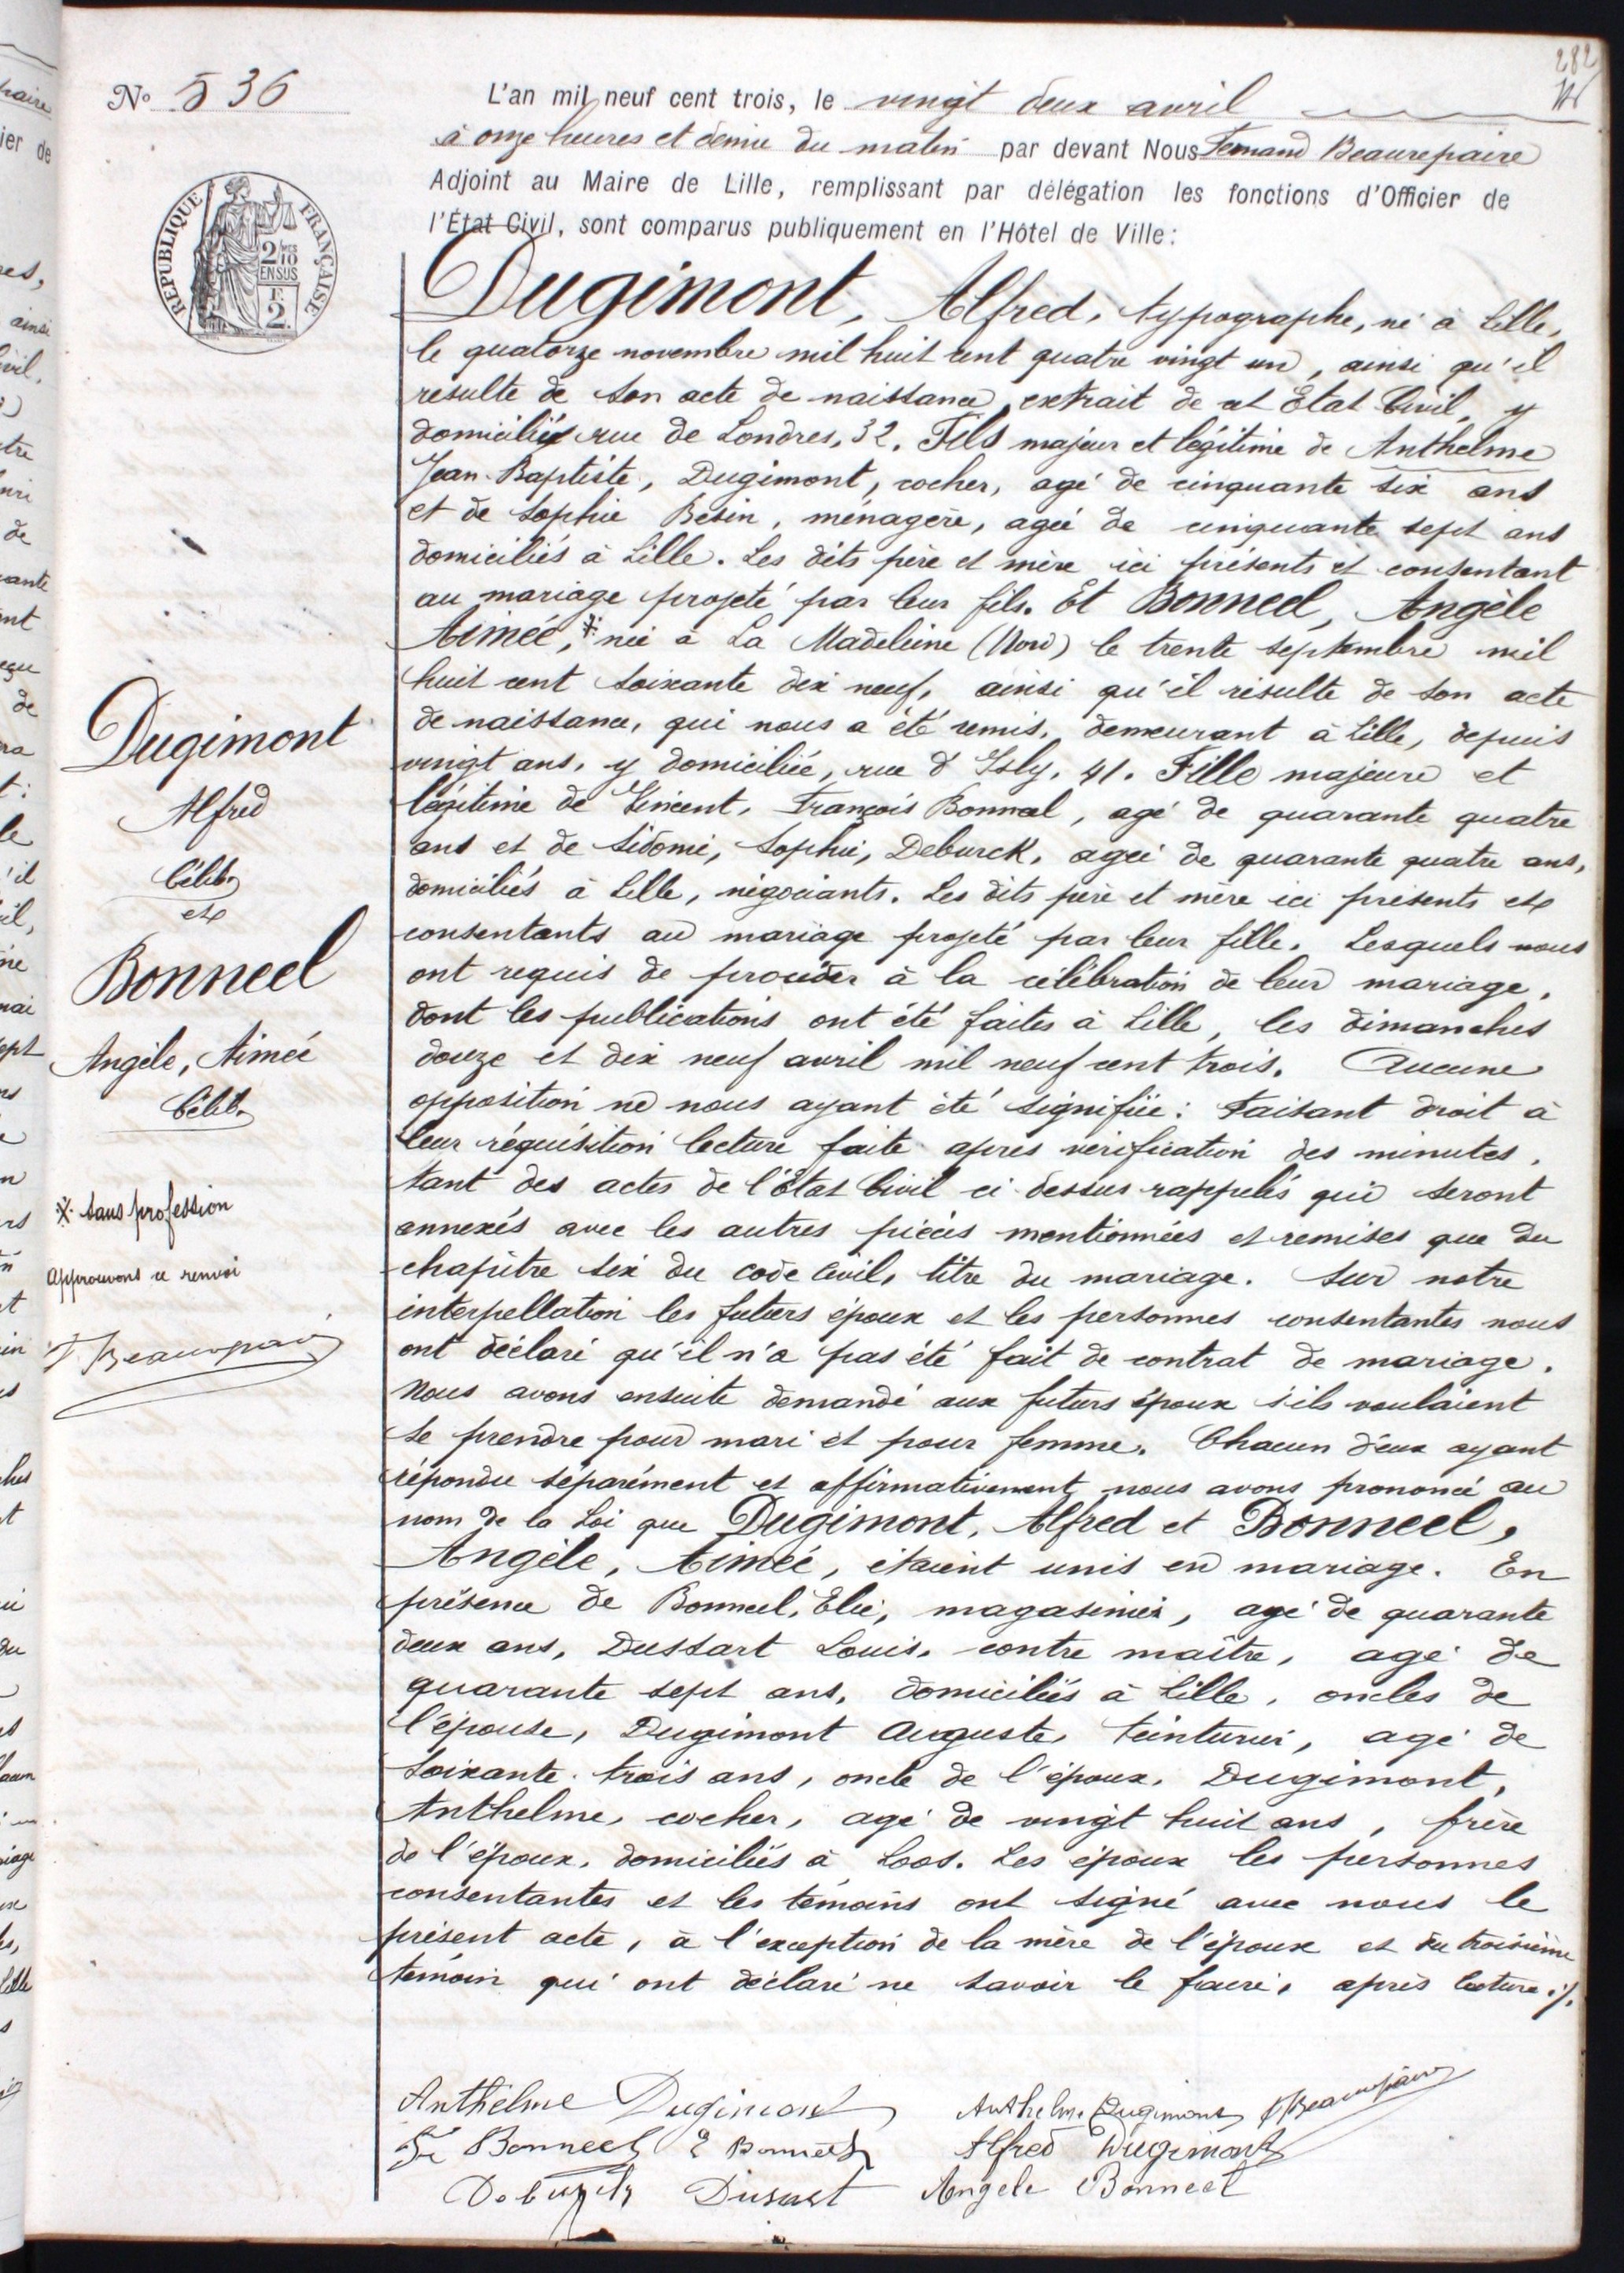 282
N° 536
L'an mil neuf cent trois, le vingt deux avril
à onze heures et demie du matin par devant Nous Fernand Beaurepaire
Adjoint au Maire de Lille, remplissant par délégation les fonctions d'Officier de
l'État Civil, sont comparus publiquement en l'Hôtel de Ville:
RÉPUBLIQUE FRANÇAISE
2/10
EN SUS
Dugimont, Alfred, typographe, né à Lille,
le quatorze novembre mil huit cent quatre vingt un, ainsi qu'il
résulte de son acte de naissance, extrait de cet État Civil, y
domicilié rue de Londres, 32. Fils majeur et légitime de Anthelme
Jean-Baptiste, Dugimont, cocher, agé de cinquante six ans
et de Sophie Besin, ménagère, agée de cinquante sept ans
domiciliés à Lille. Les dits père et mère ici présents et consentant
au mariage projeté par leur fils. Et Bonneel, Angèle
Aimée,* née à La Madeleine (Nord) le trente septembre mil
huit cent soixante dix neuf, ainsi qu'il résulte de son acte
de naissance, qui nous a été remis, demeurant à Lille, depuis
vingt ans, y domiciliée, rue d'Isly, 41. Fille majeure et
légitime de Vincent, François Bonneel, agé de quarante quatre
ans et de Sidonie, Sophie, Deburck, agée de quarante quatre ans,
domiciliés à Lille, négociants. Les dits père et mère ici présents et
consentants au mariage projeté par leur fille. Lesquels nous
ont requis de procéder à la célébration de leur mariage,
dont les publications ont été faites à Lille, les dimanches
douze et dix neuf avril mil neuf cent trois. Aucune
opposition ne nous ayant été signifiée: Faisant droit à
leur réquisition lecture faite après vérification des minutes,
tant des actes de l'État Civil ci-dessus rappelés qui seront
annexés avec les autres pièces mentionnées et remises que du
chapitre six du code civil, titre du mariage. Sur notre
interpellation les futurs époux et les personnes consentantes nous
ont déclaré qu'il n'a pas été fait de contrat de mariage.
Nous avons ensuite demandé aux futurs époux s'ils voulaient
se prendre pour mari et pour femme. Chacun d'eux ayant
répondu séparément et affirmativement, nous avons prononcé au
nom de la Loi que Dugimont, Alfred et Bonneel,
Angèle, Aimée, étaient unis en mariage. En
présence de Bonneel, Elie, magasinier, agé de quarante
deux ans, Dussart Louis, contre maître, agé de
quarante sept ans, domiciliés à Lille, oncles de
l'épouse, Dugimont Auguste, teinturier, agé de
soixante-trois ans, oncle de l'époux, Dugimont,
Anthelme, cocher, agé de vingt huit ans, frère
de l'époux, domiciliés à Loos. Les époux les personnes
consentantes et les témoins ont signé avec nous le
présent acte, à l'exception de la mère de l'époux et du troisième
témoin qui ont déclaré ne savoir le faire, après lecture ./.
Dugimont
Alfred
Célib.
et
Bonneel
Angèle, Aimée
Célib.
* sans profession
Approuvons ce renvoi
F. Beaurepaire
Anthelme Dugimont Anthelme Dugimont F Beaurepaire
Bonneel E Bonneel Alfred Dugimont
Dusart Angele Bonneel